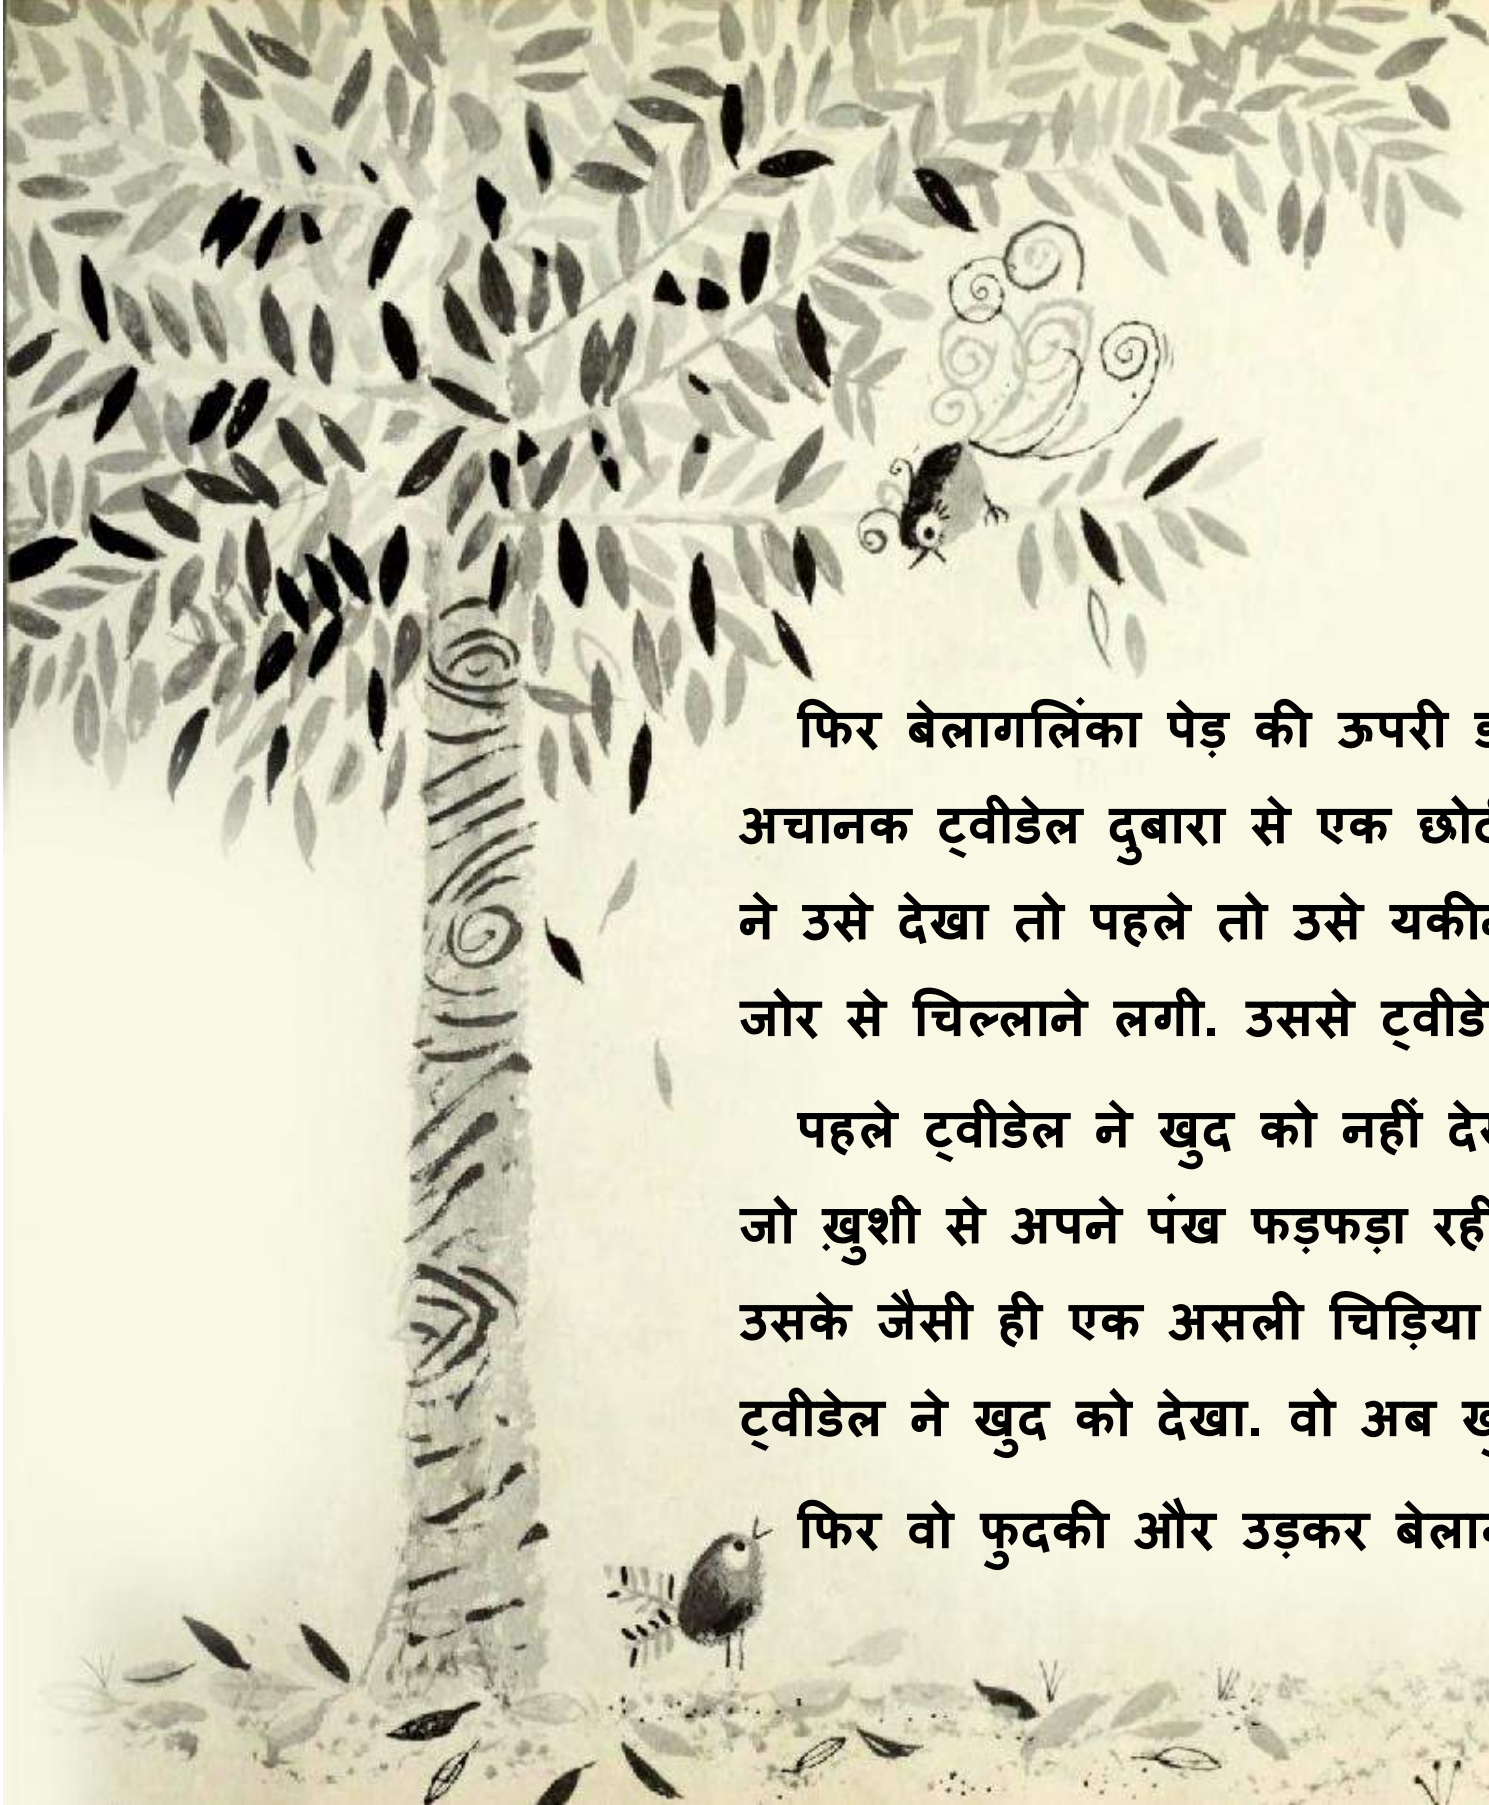 फिर बेलागलिंका पेड़ की ऊपरी
अचानक ट्वीडेल दुबारा से एक
ने उसे देखा तो पहले तो उसे
जोर से चिल्लाने लगी. उससे
पहले ट्वीडेल ने खुद को नहीं
जो ख़ुशी से अपने पंख फड़फड़ा
उसके जैसी ही एक असली चिड़िया
ट्वीडेल ने खुद को देखा. वो अब
फिर वो फुदकी और उड़कर